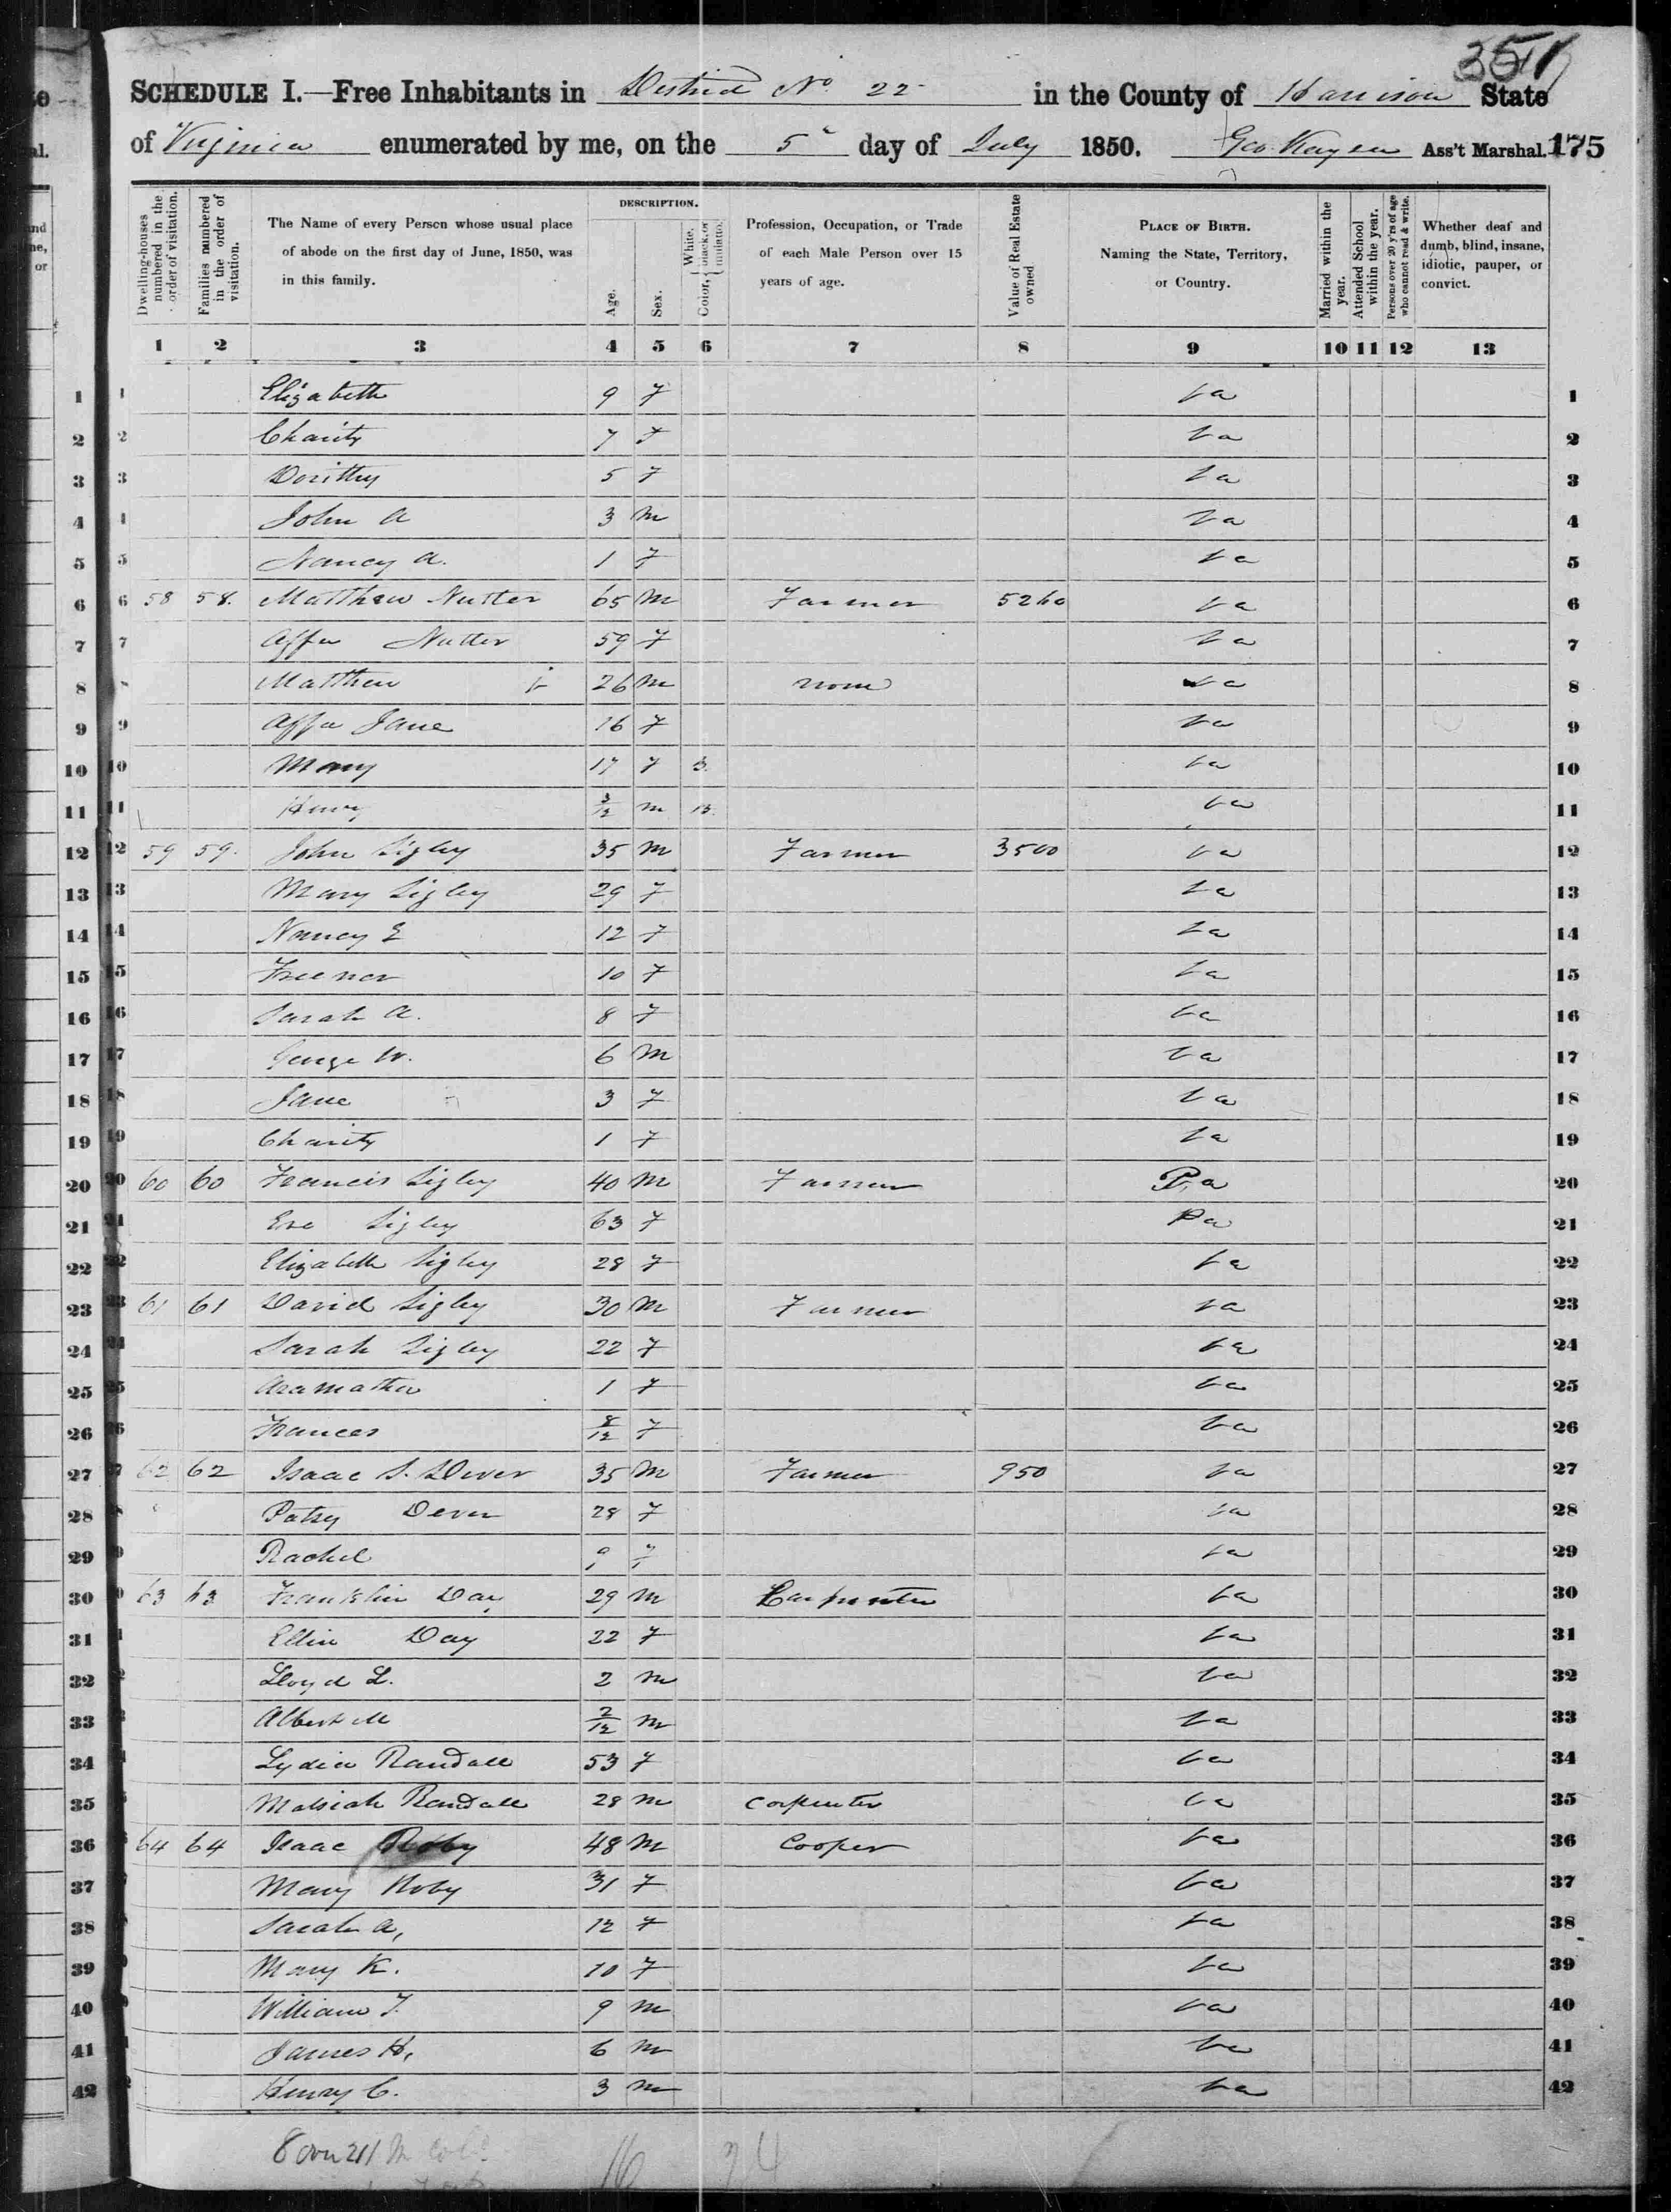 3517
SCHEDULE I.—Free Inhabitants in District No. 22 in the County of Harrison State
of Virginia enumerated by me, on the 5" day of July 1850. Geo Ass't Marshal. 175
Dwelling-houses numbered in the order of visitation.
Families numbered in the order of visitation.
The Name of every Person whose usual place of abode on the first day of June, 1850, was in this family.
DESCRIPTION.
Age.
Sex.
Color, { White, black, or mulatto.
Profession, Occupation, or Trade of each Male Person over 15 years of age.
Value of Real Estate owned
PLACE OF BIRTH. Naming the State, Territory, or Country.
Married within the year.
Attended School within the year.
Persons over 20 y'rs of age who cannot read & write.
Whether deaf and dumb, blind, insane, idiotic, pauper, or convict.
1 2 3 4 5 6 7 8 9 10 11 12 13
1 1 Elizabeth 9 F Va 1
2 2 Charity 7 F Va 2
3 3 Dorithy 5 F Va 3
4 4 John A 3 M Va 4
5 5 Nancy A. 1 F Va 5
6 6 58 58. Matthew Nutter 65 M Farmer 5260 Va 6
7 7 Affa Nutter 59 F Va 7
8 Matthew 26 M none Va 8
9 9 Affa Jane 16 F Va 9
10 10 Mary 17 F B. Va 10
11 11 Henry 3/12 M B. Va 11
12 12 59 59. John Sigley 35 M Farmer 3500 Va 12
13 13 Mary Sigley 29 F Va 13
14 14 Nancy E 12 F Va 14
15 15 10 F Va 15
16 16 Sarah A. 8 F Va 16
17 17 George W. 6 M Va 17
18 18 Jane 3 F Va 18
19 19 Charity 1 F Va 19
20 20 60 60 Francis Sigley 40 M Farmer Pa 20
21 21 Eve Sigley 63 F Pa 21
22 22 Elizabeth Sigley 28 F Va 22
23 23 61 61 David Sigley 30 M Farmer Va 23
24 24 Sarah Sigley 22 F Va 24
25 25 Aramatha 1 F Va 25
26 26 Frances 8/12 F Va 26
27 7 62 62 Isaac S. Dever 35 M Farmer 950 Va 27
28 8 Patsy Dever 28 F Va 28
29 9 Rachel 9 F Va 29
30 0 63 63 Franklin Day 29 M Carpenter Va 30
31 1 Ellin Day 22 F Va 31
32 2 Lloyd L. 2 M Va 32
33 Albert M 2/12 M Va 33
34 Lydia Randall 53 F Va 34
35 Randall 28 M Carpenter Va 35
36 64 64 Isaac Roby 48 M Cooper Va 36
37 Mary Roby 31 F Va 37
38 Sarah A, 12 F Va 38
39 Mary K. 10 F Va 39
40 William T. 9 M Va 40
41 James H, 6 M Va 41
42 Henry C. 3 M Va 42
16 24